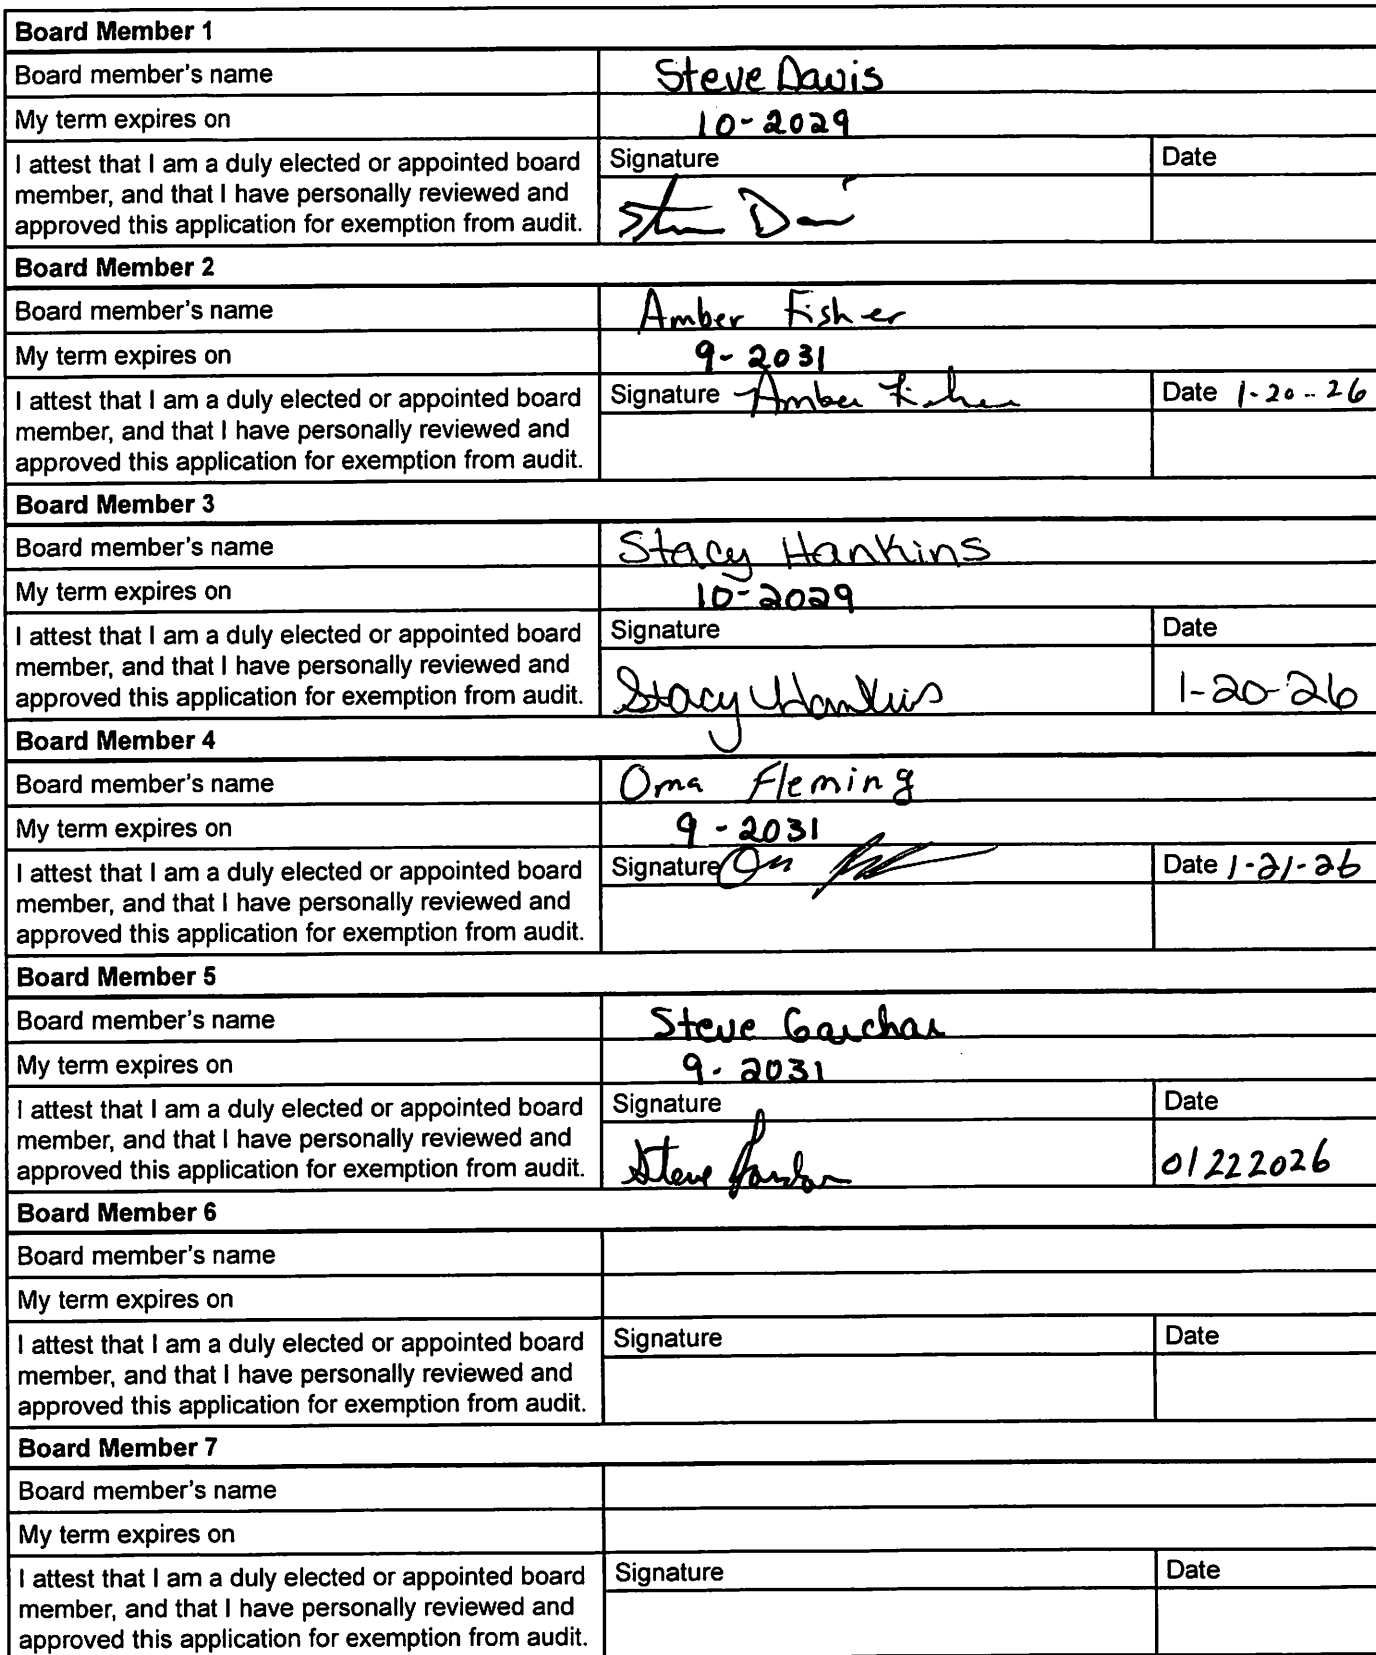 Board Member 1
Board member's name Steve Davis
My term expires on 10-2029
I attest that I am a duly elected or appointed board Signature Date
member, and that I have personally reviewed and
approved this application for exemption from audit.
Board Member 2
Board member's name Amber Fisher
My term expires on 9-2031
I attest that I am a duly elected or appointed board Signature Amber Fisher Date 1-20-26
member, and that I have personally reviewed and
approved this application for exemption from audit.
Board Member 3
Board member's name Stacy Hankins
My term expires on 10-2029
I attest that I am a duly elected or appointed board Signature Date
member, and that I have personally reviewed and
approved this application for exemption from audit. Stacy Hankins 1-20-26
Board Member 4
Board member's name Oma Fleming
My term expires on 9-2031
I attest that I am a duly elected or appointed board Signature Date 1-21-26
member, and that I have personally reviewed and
approved this application for exemption from audit.
Board Member 5
Board member's name Steve Garchar
My term expires on 9-2031
I attest that I am a duly elected or appointed board Signature Date
member, and that I have personally reviewed and
approved this application for exemption from audit. Steve 01222026
Board Member 6
Board member's name
My term expires on
I attest that I am a duly elected or appointed board Signature Date
member, and that I have personally reviewed and
approved this application for exemption from audit.
Board Member 7
Board member's name
My term expires on
I attest that I am a duly elected or appointed board Signature Date
member, and that I have personally reviewed and
approved this application for exemption from audit.